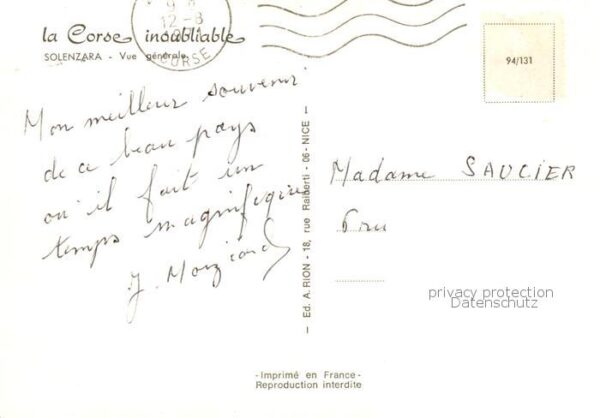 9
12-8
CORSE
la Corse inoubliable
SOLENZARA - Vue générale
94/131
Mon meilleur souvenir
de ce beau pays
où il fait un
temps magnifique
J.
Madame SAUCIER
- Ed. A. RION - 18, rue Raiberti - 06 - NICE -
privacy protection
Datenschutz
- Imprimé en France -
Reproduction interdite